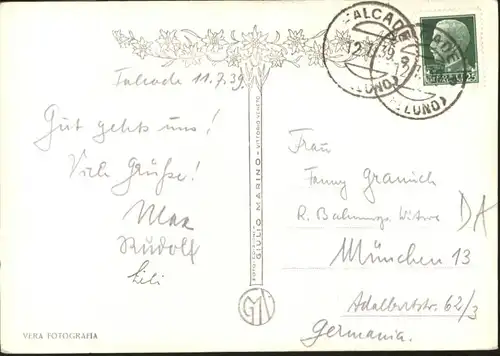 Falcade 11.7.39.
Gut gehts uns!
Viele Grüße!
Max
Rudolf
Lili
VERA FOTOGRAFIA
GIULIO MARINO - VITTORIO VENETO
GM
FALCADE
12.7.39
(BELLUNO)
25
Frau
Fanny Gramich
R. Witwe
München 13
Adalbertstr. 62/3
Germania.
DA